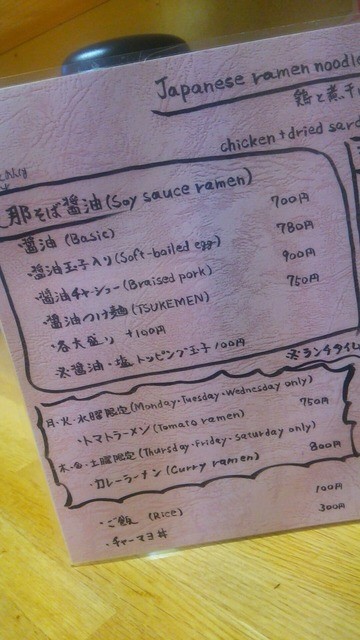 Japanese ramen noodle
鶏と煮干
chicken + dried sard
那そば醤油 (Soy sauce ramen)
・醤油 (Basic) 700円
・醤油玉子入り (Soft-bailed egg) 780円
・醤油チャーシュー (Braised pork) 900円
・醤油つけ麺 (TSUKEMEN) 750円
・各大盛り +100円
※醤油・塩 トッピング玉子 100円
※ランチタイム
月・火・水曜限定 (Monday・Tuesday・Wednesday only)
・トマトラーメン (Tomato ramen) 750円
木・金・土曜限定 (Thursday・Friday・saturday only)
・カレーラーメン (Curry ramen) 800円
・ご飯 (Rice) 100円
・チャーマヨ丼 300円